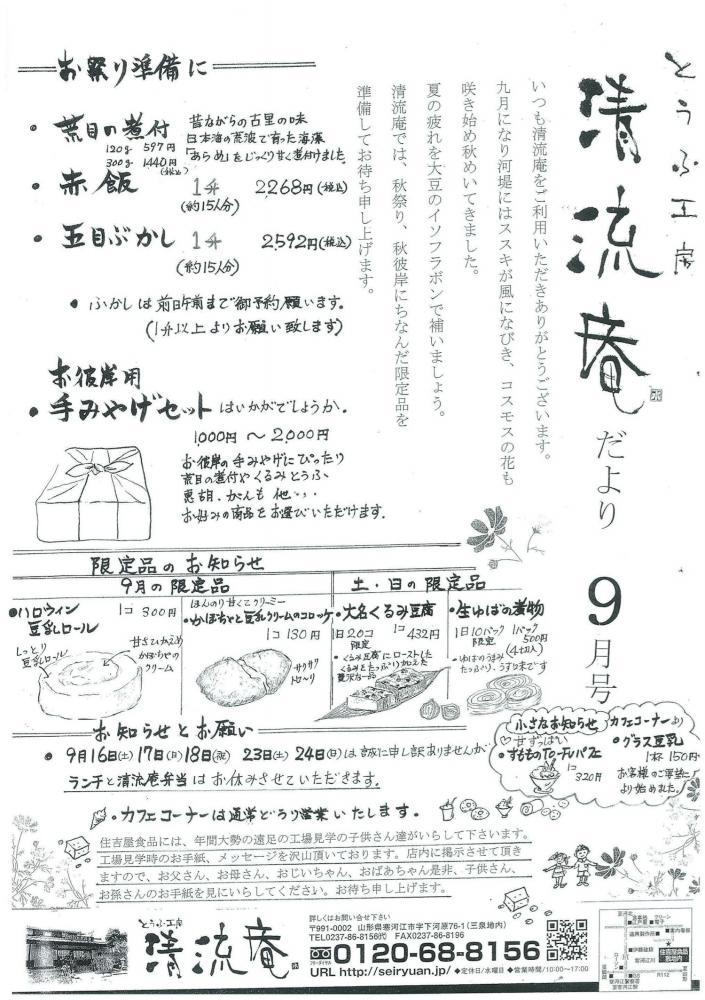 とうふ工房
清流庵
だより
9月号
いつも清流庵をご利用いただきありがとうございます。
九月になり河堤にはススキが風になびき、コスモスの花も
咲き始め秋めいてきました。
夏の疲れを大豆のイソフラボンで補いましょう。
清流庵では、秋祭り、秋彼岸にちなんだ限定品を
準備してお待ち申し上げます。
お祭り準備に
・荒目の煮付
120g 597円
300g 1440円(税込)
昔ながらの古里の味
日本海の荒波で育った海藻
「あらめ」をじっくり甘く煮付けました。
・赤飯 1升 2268円(税込)
(約15人分)
・五目ぶかし 1升 2592円(税込)
(約15人分)
・ふかしは前日午前まで御予約願います。
(1升以上よりお願い致します)
お彼岸用
・手みやげセットはいかがでしょうか。
1,000円 〜 2,000円
お彼岸の手みやげにぴったり
荒目の煮付やくるみとうふ、
恵胡、がんも 他・・・
お好みの商品をお選びいただけます。
限定品のお知らせ
9月の限定品
・ハロウィン豆乳ロール
1コ 300円
しっとり豆乳ロール
甘さひかえめ
かぼちゃの
クリーム
ほんのり甘くてクリーミー
・かぼちゃと豆乳クリームのコロッケ
1コ 130円
サクサク
トロ〜リ
土・日の限定品
・大名くるみ豆腐
1日20コ限定
1コ 432円
・くるみ豆腐にローストした
くるみをたっぷり加えた
贅沢な一品
・生ゆばの煮物
1日10パック限定
1パック 500円
(4切入)
・ゆばのうまみ
たっぷり、うす口末です
お知らせとお願い
・9月16(土)17(日)18(祝) 23(土)24(日)は誠に申し訳ありませんが
ランチと清流庵弁当はお休みさせていただきます。
・カフェコーナーは通常どうり営業いたします。
小さなお知らせ
甘ずっぱい
・すももTo-Fuパフェ
1コ 320円
カフェコーナーより
・グラス豆乳
1杯 150円
お客様のご要望に
より始めました。
住吉屋食品には、年間大勢の遠足の工場見学の子供さん達がいらして下さいます。
工場見学時のお手紙、メッセージを沢山頂いております。店内に掲示させて頂き
ますので、お父さん、お母さん、おじいちゃん、おばあちゃん是非、子供さん、
お孫さんのお手紙を見にいらしてください。お待ち申し上げます。
とうふ工房
清流庵
詳しくはお問い合せ下さい
〒991-0002 山形県寒河江市字下河原76-1(三泉地内)
TEL0237-86-8156㈹ FAX0237-86-8196
フリーダイヤル
0120-68-8156
URL http://seiryuan.jp/ ◆定休日/水曜日 ◆営業時間/10:00〜17:00
R112